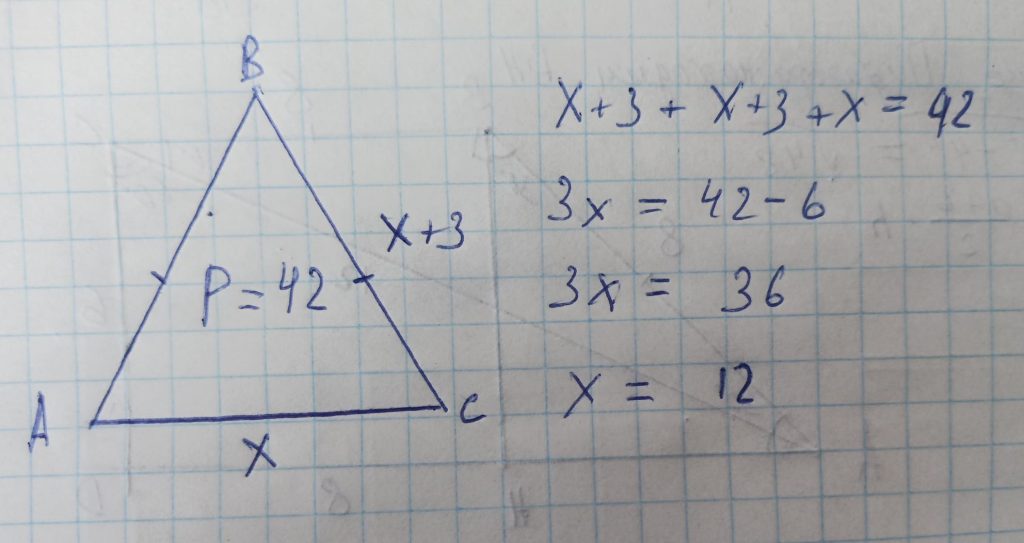 B
X+3
P=42
A
C
X
X+3+X+3+X=42
3x = 42-6
3x = 36
X = 12